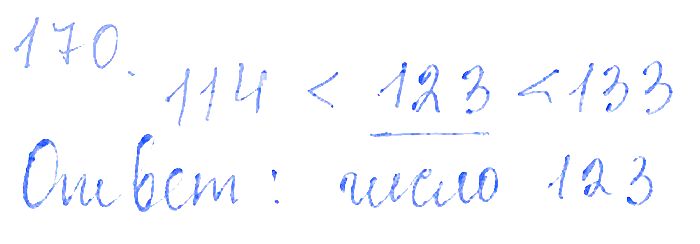 170.
114 < 123 < 133
Ответ: число 123